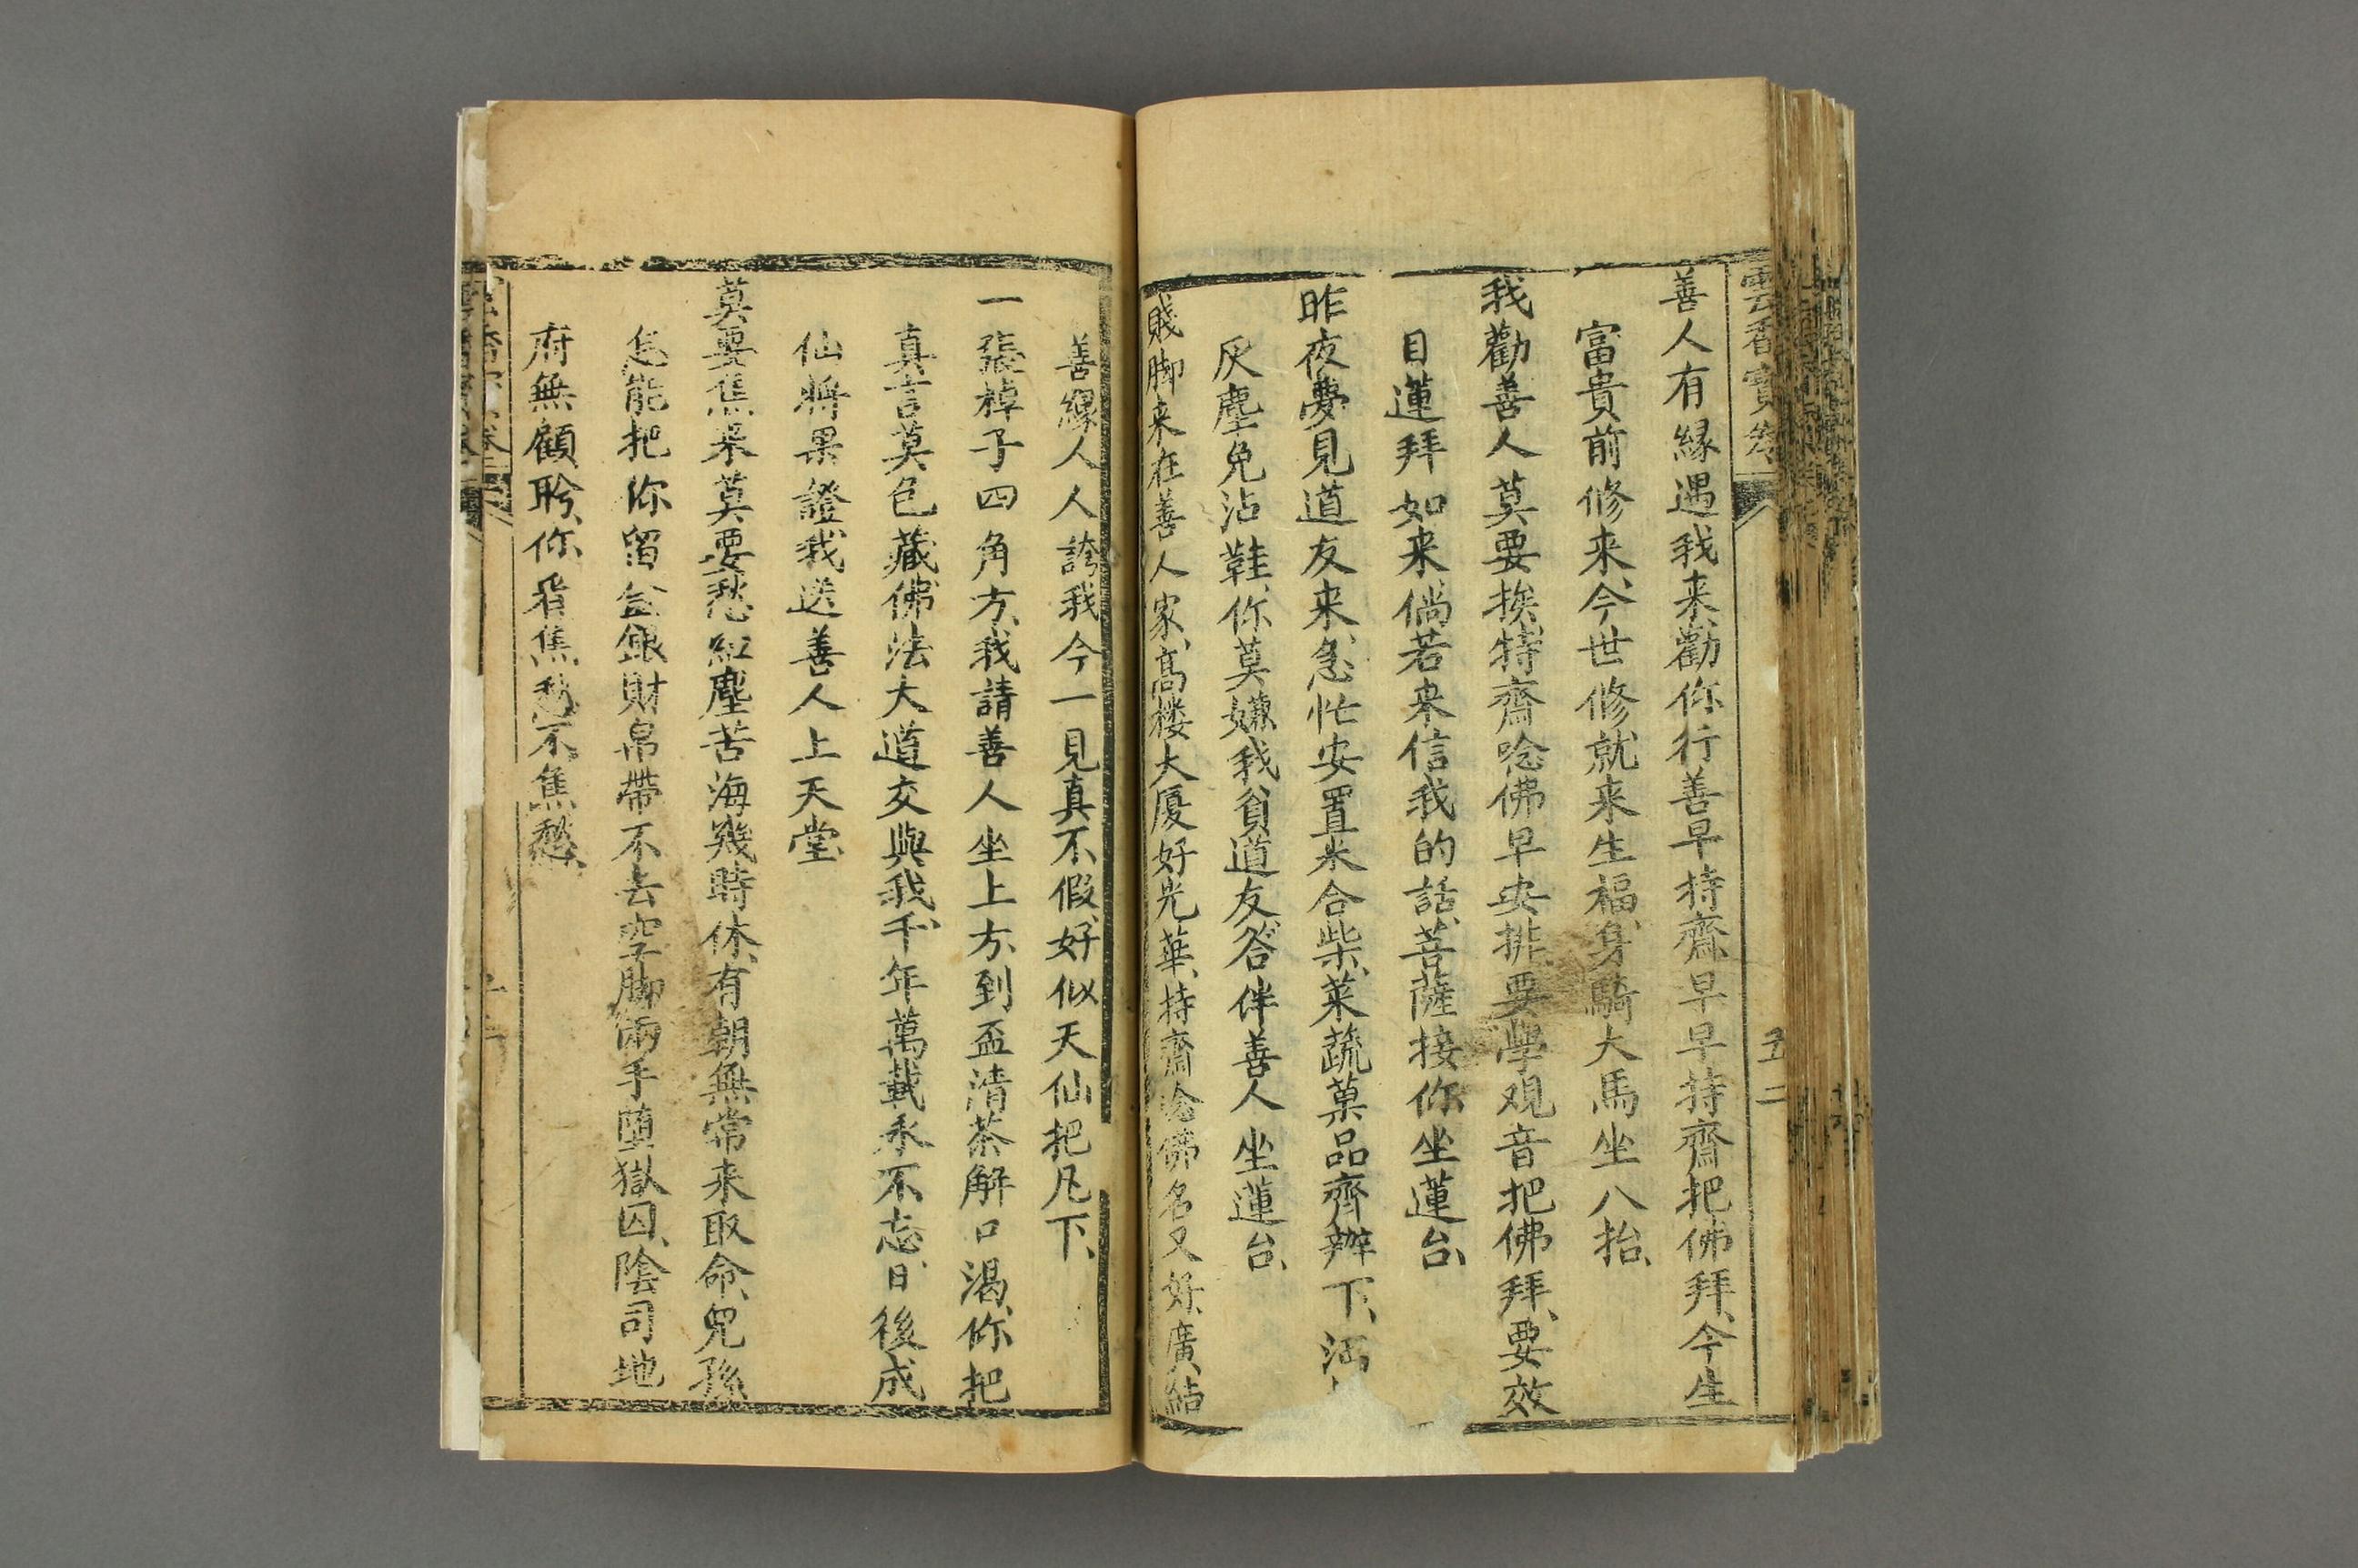 雲香寶卷
五二
善人有緣遇我来勸你行善早持齋早早持齋把佛拜、今生
富貴前修来、今世修就来生福、身騎大馬坐八抬、
我勸善人莫要挨、持齋唸佛早安排、要學观音把佛拜、要效
目蓮拜如来、倘若来信我的話、菩薩接你坐蓮台、
昨夜夢見道友来、急忙安置米合柴、菜蔬菓品齊辦下、洒
灰塵免沾鞋、你莫嫌我貧道友、答伴善人坐蓮台、
賤脚来在善人家、髙楼大厦好光華、持齋唸佛名又好、廣結
善緣人人誇、我今一見真不假、好似天仙把凡下、
一張棹子四角方、我請善人坐上方、到盃清茶解口渴、你把
真言莫色藏、佛法大道交與我、千年萬載永不忘、日後成
仙將果證、我送善人上天堂、
莫要焦来莫要愁、紅塵苦海幾時休、有朝無常来取命、兒孫
怎能把你留、金銀財帛帶不去、空脚兩手墮獄囚、陰司地
府無顧盻、你看焦愁不焦愁、